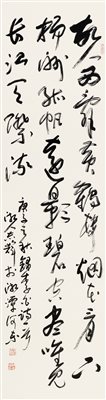 故人西辞黄鶴樓烟花三月下
揚州孤帆遠影碧空盡唯見
長江天際流
庚子之秋錄李白詩一首